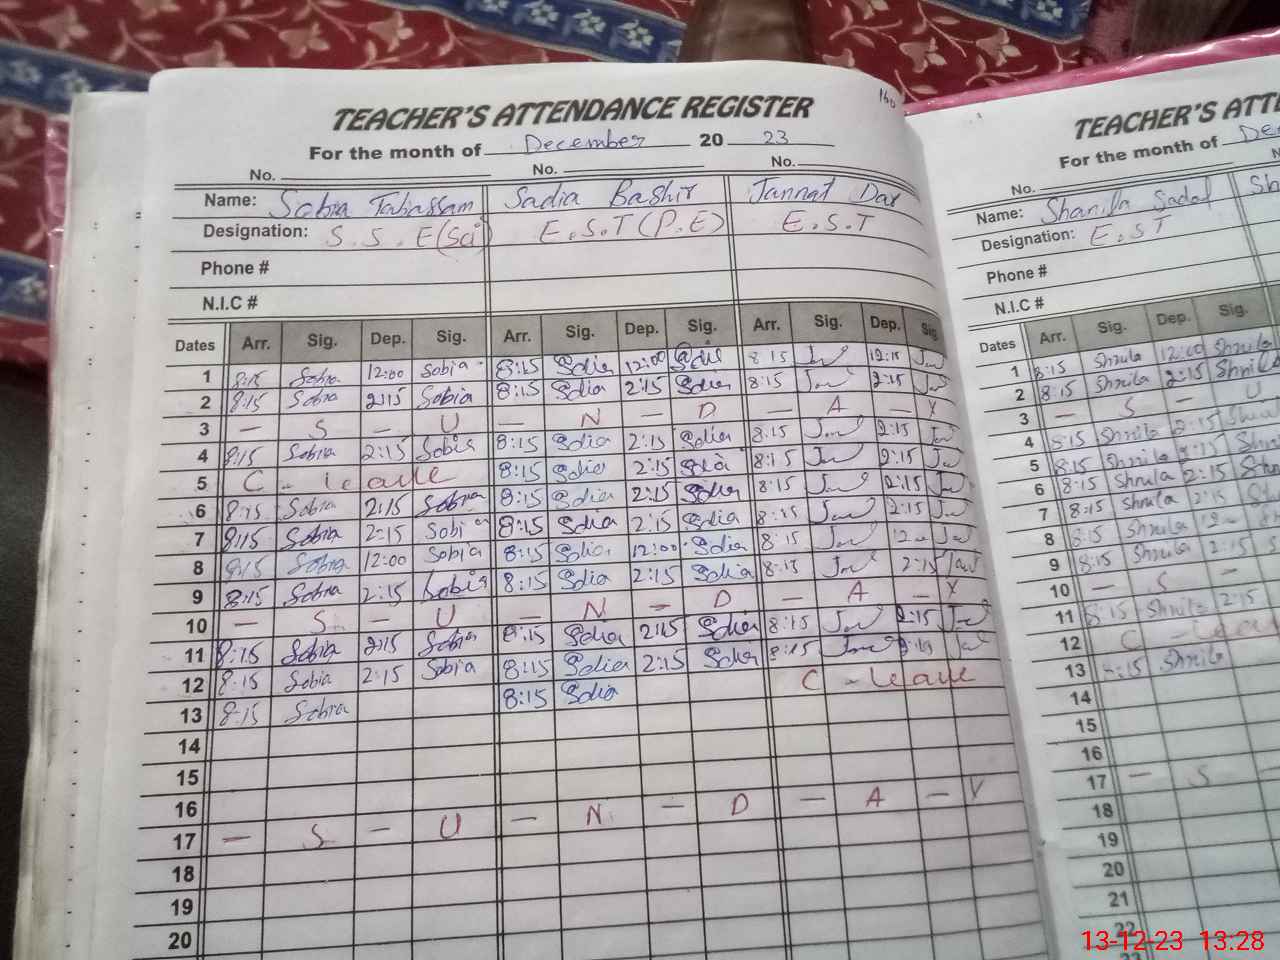 160
TEACHER'S ATTENDANCE REGISTER
For the month of December 20 23
No. No. No.
Name: Sobia Tabassam Sadia Bashir Jannat Dar
Designation: S.S.E(Sci) E.S.T(P.E) E.S.T
Phone #
N.I.C #
Dates Arr. Sig. Dep. Sig. Arr. Sig. Dep. Sig. Arr. Sig. Dep. Sig.
1 8:15 Sobia 12:00 Sobia 8:15 Sdia 12:00 Sdia 8:15 12:15
2 8:15 Sobia 2:15 Sobia 8:15 Sdia 2:15 Sdia 8:15 2:15
3 — S — U — N — D — A — Y
4 8:15 Sobia 2:15 Sobia 8:15 Sdia 2:15 Sdia 8:15 2:15
5 C - leave 8:15 Sdia 2:15 Sdia 8:15 2:15
6 8:15 Sobia 2:15 Sobia 8:15 Sdia 2:15 Sdia 8:15 2:15
7 8:15 Sobia 2:15 Sobia 8:15 Sdia 2:15 Sdia 8:15 2:15
8 8:15 Sobia 12:00 Sobia 8:15 Sdia 12:00 Sdia 8:15
9 8:15 Sobia 2:15 Sobia 8:15 Sdia 2:15 Sdia 8:15 2:15
10 — S — U — N — D — A — Y
11 8:15 Sobia 2:15 Sobia 8:15 Sdia 2:15 Sdia 8:15 2:15
12 8:15 Sobia 2:15 Sobia 8:15 Sdia 2:15 Sdia 8:15
13 8:15 Sobia 8:15 Sdia C - leave
14
15
16
17 — S — U — N — D — A — Y
18
19
20
TEACHER'S ATT
For the month of De
No.
Name: Shanila Sadaf Sh
Designation: E.ST
Phone #
N.I.C #
Dates Arr. Sig. Dep. Sig.
1 8:15 Shnila 12:00 Shnila
2 8:15 Shnila 2:15 Shnila
3 — S — U
4 8:15 Shnila 2:15
5 8:15 Shnila 2:15
6 8:15 Shnila 2:15
7 8:15 Shnila 2:15
8 8:15 Shnila
9 8:15 Shnila 2:15
10 — S —
11 8:15 Shnila 2:15
12 C - leave
13 8:15 Shnila
14
15
16
17 — S —
18
19
20
21
22
23
13-12-23 13:28